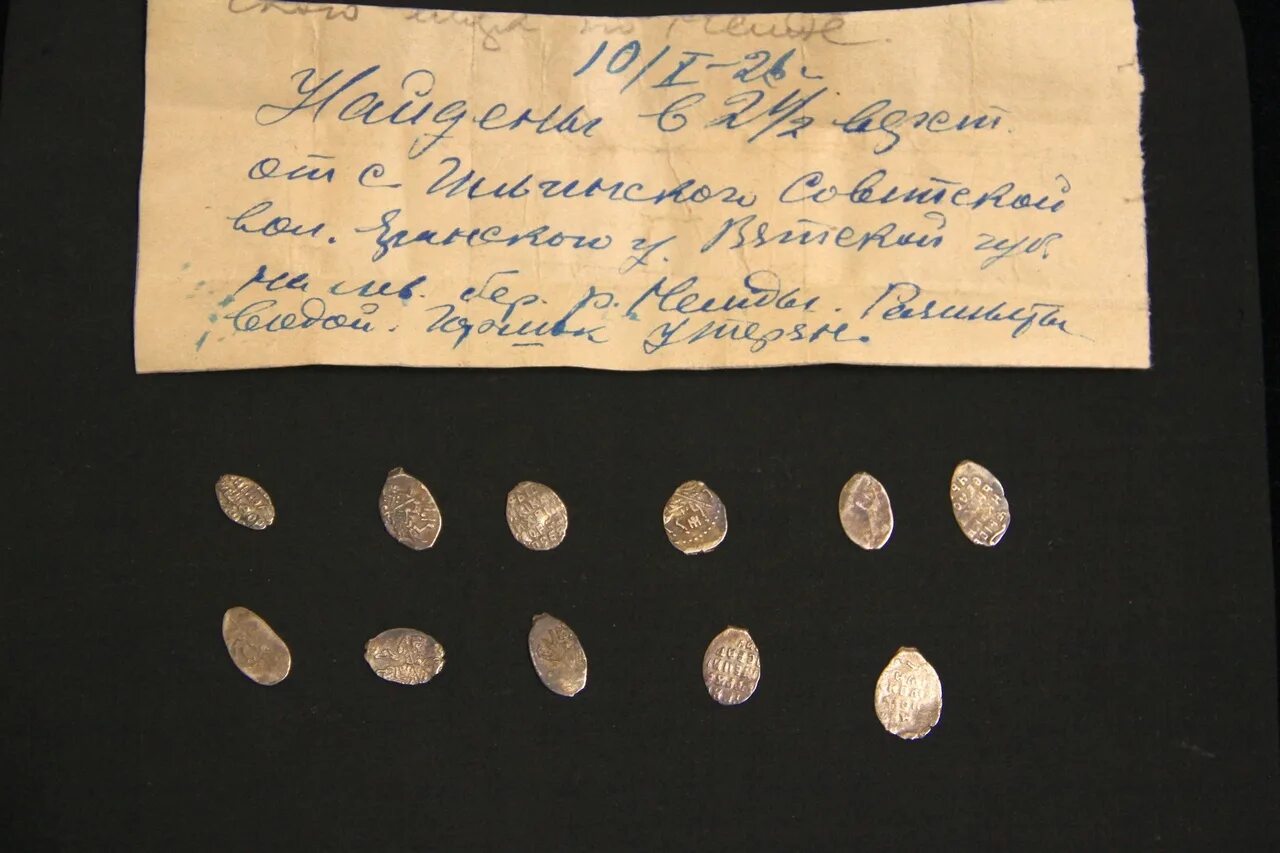 по Немде.
10/I-26 г
Найдены в 2 1/2 верст.
от с Ильинского Советской
вол. Яранского у. Вятской губ
на лев. бер. р. Немды. Размыты
водой. Горшок утерян.